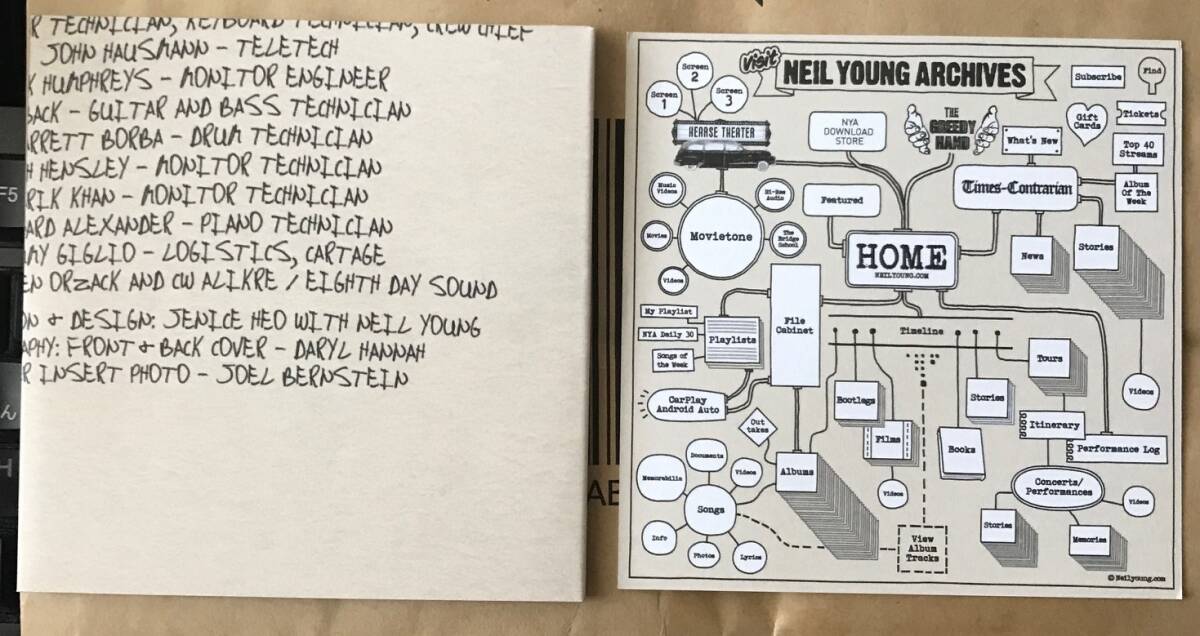 R TECHNICIAN, KEYBOARD TECHNICIAN, CREW CHIEF
JOHN HAUSMANN – TELETECH
K HUMPHREYS – MONITOR ENGINEER
BACK – GUITAR AND BASS TECHNICIAN
ARRETT BORBA – DRUM TECHNICIAN
H HENSLEY – MONITOR TECHNICIAN
RIK KHAN – MONITOR TECHNICIAN
ARD ALEXANDER – PIANO TECHNICIAN
MY GIGLIO – LOGISTICS, CARTAGE
EN ORZACK AND CW ALIKRE / EIGHTH DAY SOUND
ON & DESIGN: JENICE HEO WITH NEIL YOUNG
APHY: FRONT & BACK COVER – DARYL HANNAH
R INSERT PHOTO – JOEL BERNSTEIN
F5
ん
H
AB
Visit
NEIL YOUNG ARCHIVES
Subscribe
Find
Screen
1
Screen
2
Screen
3
HEARSE THEATER
NYA
DOWNLOAD
STORE
THE
GREEDY
HAND
What's New
Gift
Cards
Tickets
Top 40
Streams
Album
Of The
Week
Times-Contrarian
Featured
Music
Videos
Hi-Res
Audio
Movies
Movietone
The
Bridge
School
Videos
HOME
NEILYOUNG.COM
News
Stories
File
Cabinet
My Playlist
NYA Daily 30
Songs of
the Week
Playlists
Timeline
CarPlay
Android Auto
Out
takes
Bootlegs
Films
Videos
Books
Stories
Tours
Videos
Itinerary
Performance Log
Concerts/
Performances
Videos
Stories
Memories
Albums
Documents
Memorabilia
Videos
Songs
Info
Photos
Lyrics
View
Album
Tracks
© Neilyoung.com